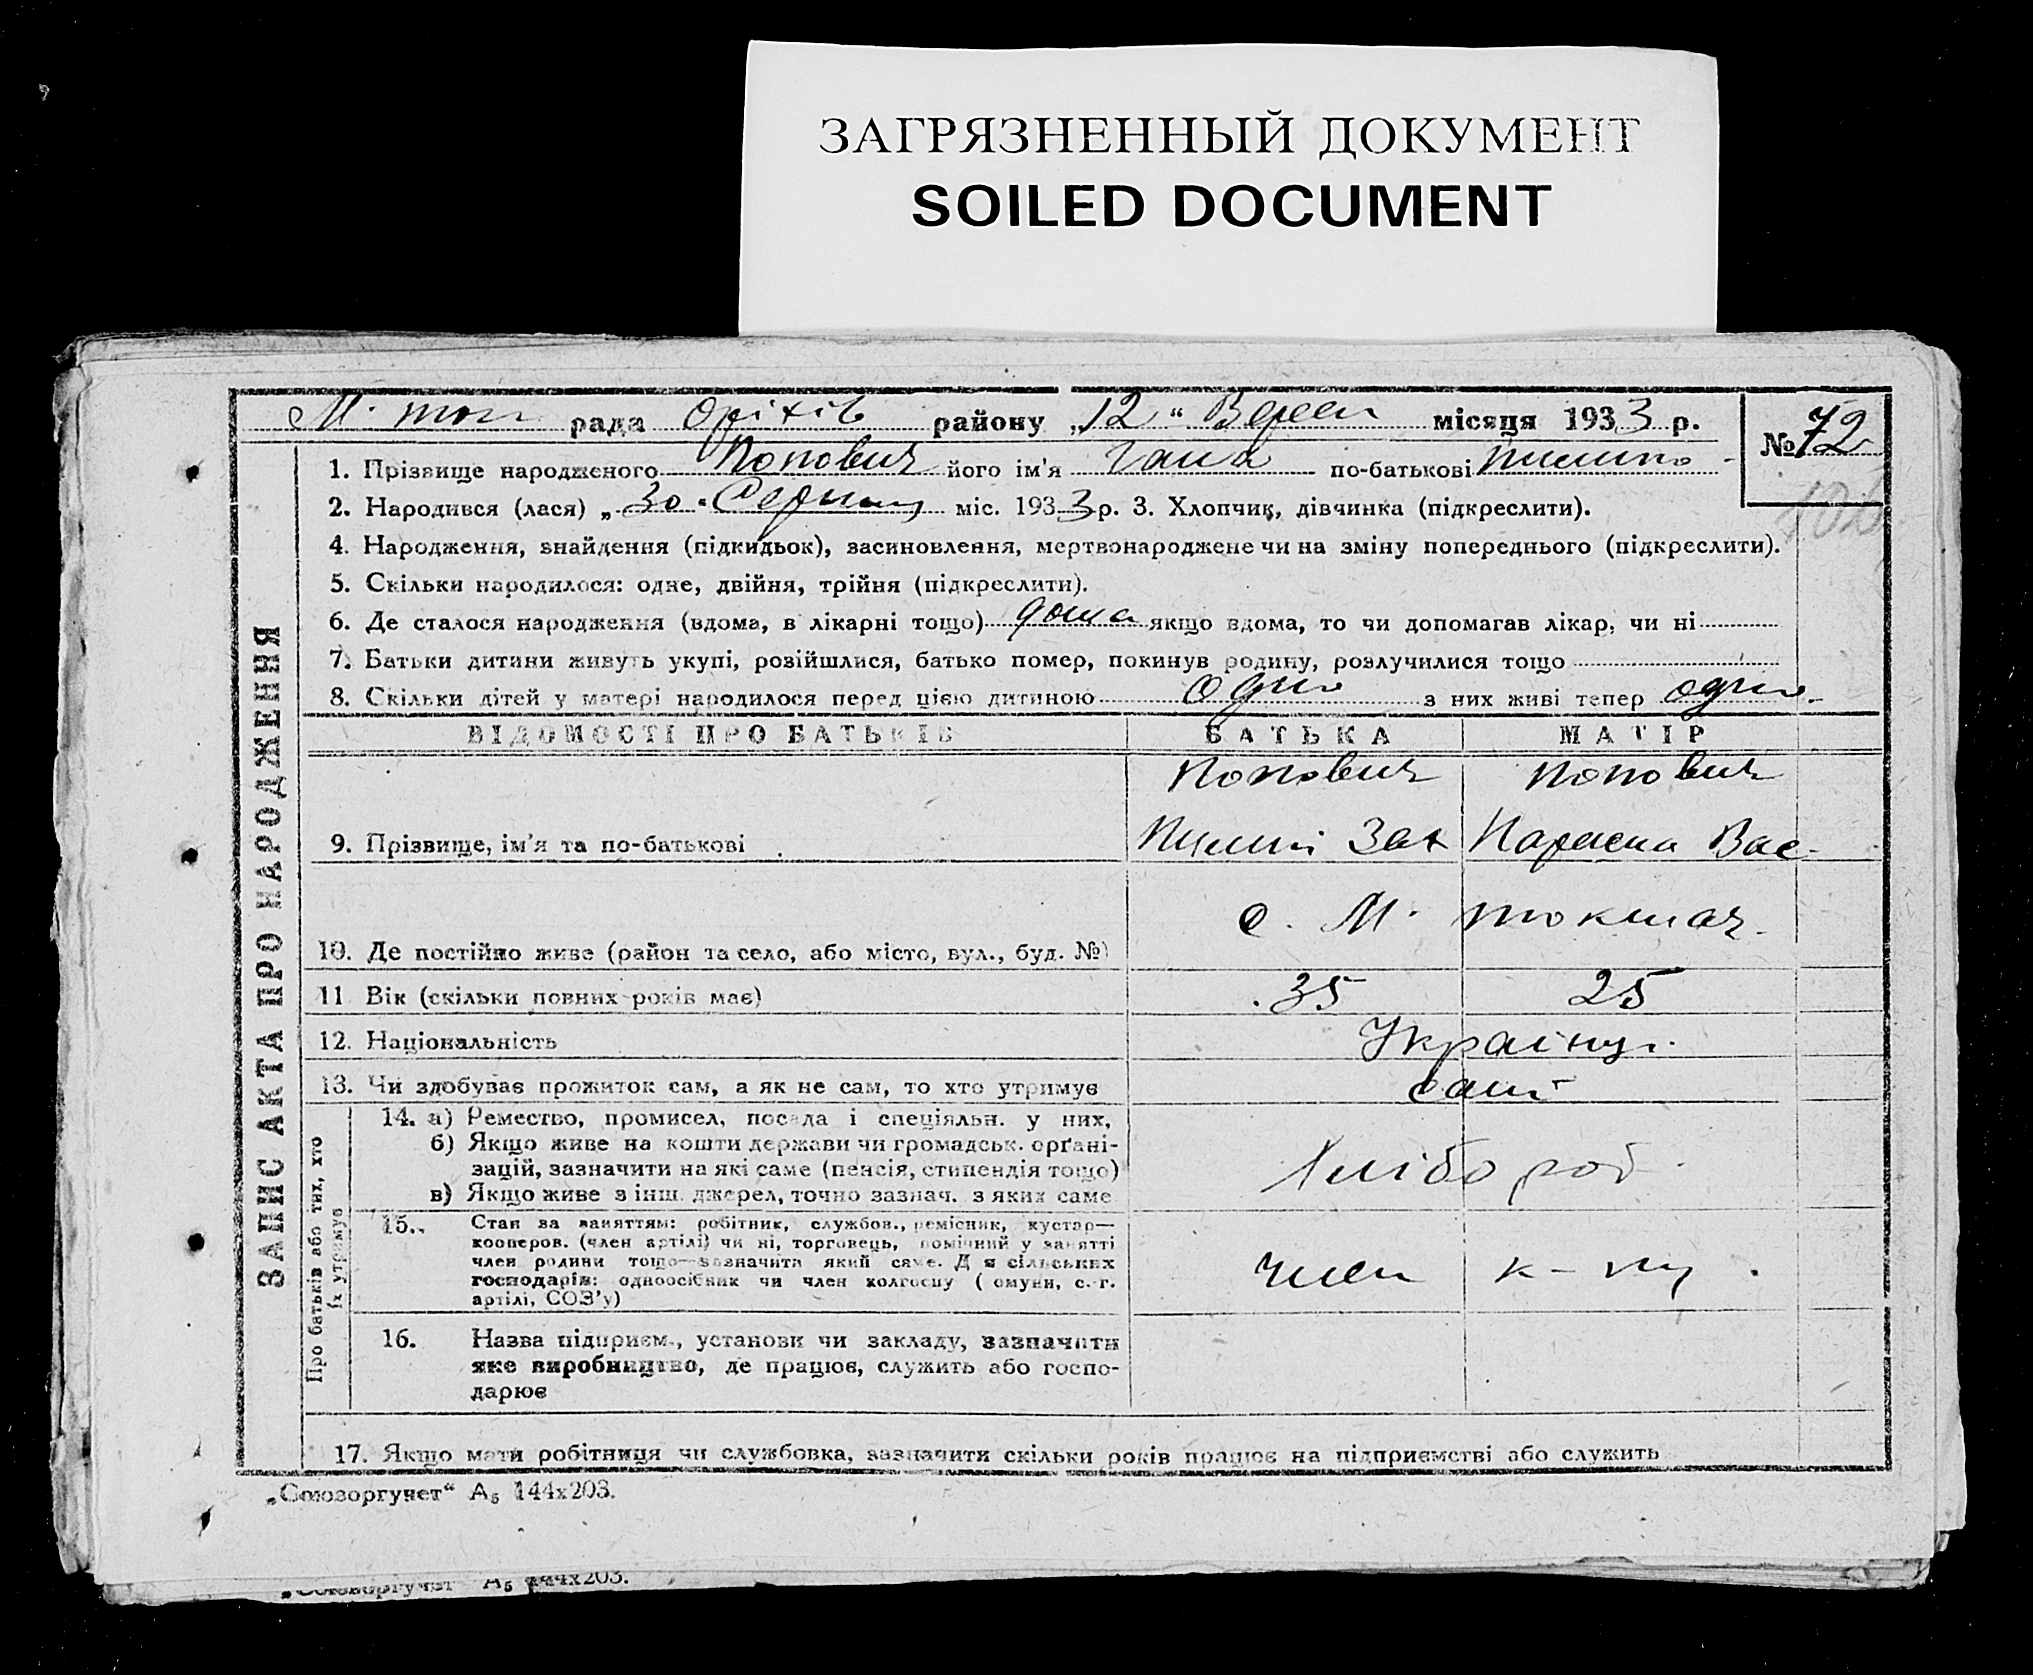 ЗАГРЯЗНЕННЫЙ ДОКУМЕНТ
SOILED DOCUMENT
М. ток рада Оріхів району „12“ Верес місяця 1933 р.
№ 72
ЗАПИС АКТА ПРО НАРОДЖЕННЯ
1. Прізвище народженого Попович його ім'я Гана по-батькові Пилипо
2. Народився (лася) „30“ Серпня міс. 1933 р. 3. Хлопчик, дівчинка (підкреслити).
4. Народження, знайдення (підкидьок), засиновлення, мертвонароджене чи на зміну попереднього (підкреслити).
5. Скільки народилося: одне, двійня, трійня (підкреслити).
6. Де сталося народження (вдома, в лікарні тощо) дома якщо вдома, то чи допомагав лікар, чи ні
7. Батьки дитини живуть укупі, розійшлися, батько помер, покинув родину, розлучилися тощо
8. Скільки дітей у матері народилося перед цією дитиною одно з них живі тепер одно
ВІДОМОСТІ ПРО БАТЬКІВ БАТЬКА МАТІР
Попович Попович
9. Прізвище, ім'я та по-батькові Пилип Зах Параска Вас.
с. М. токмач.
10. Де постійно живе (район та село, або місто, вул., буд. №)
11 Вік (скільки повних років має) 35 25
12. Національність Українці.
13. Чи здобуває прожиток сам, а як не сам, то хто утримує сам
Про батьків або тих, хто їх утримує
14. а) Ремество, промисел, посада і спеціяльн. у них,
б) Якщо живе на кошти держави чи громадськ. орґані-
зацій, зазначити на які саме (пенсія, стипендія тощо)
Хлібороб.
в) Якщо живе з інш. джерел, точно зазнач. з яких саме
15. Стан за заняттям: робітник, службов., ремісник, кустар—
кооперов. (член артілі) чи ні, торговець, помічний у занятті
член родини тощо—зазначити який саме. Для сільських
господарів: одноосібник чи член колгоспу (комуни, с.-г.
артілі, СОЗ'у)
Член к-пу.
16. Назва підприєм., установи чи закладу, зазначити
яке виробництво, де працює, служить або госпо-
дарює
17. Якщо мати робітниця чи службовка, зазначити скільки років працює на підприємстві або служить
„Союзоргучет“ А₅ 144х203.
„Союзоргучет“ А₅ 144х203.